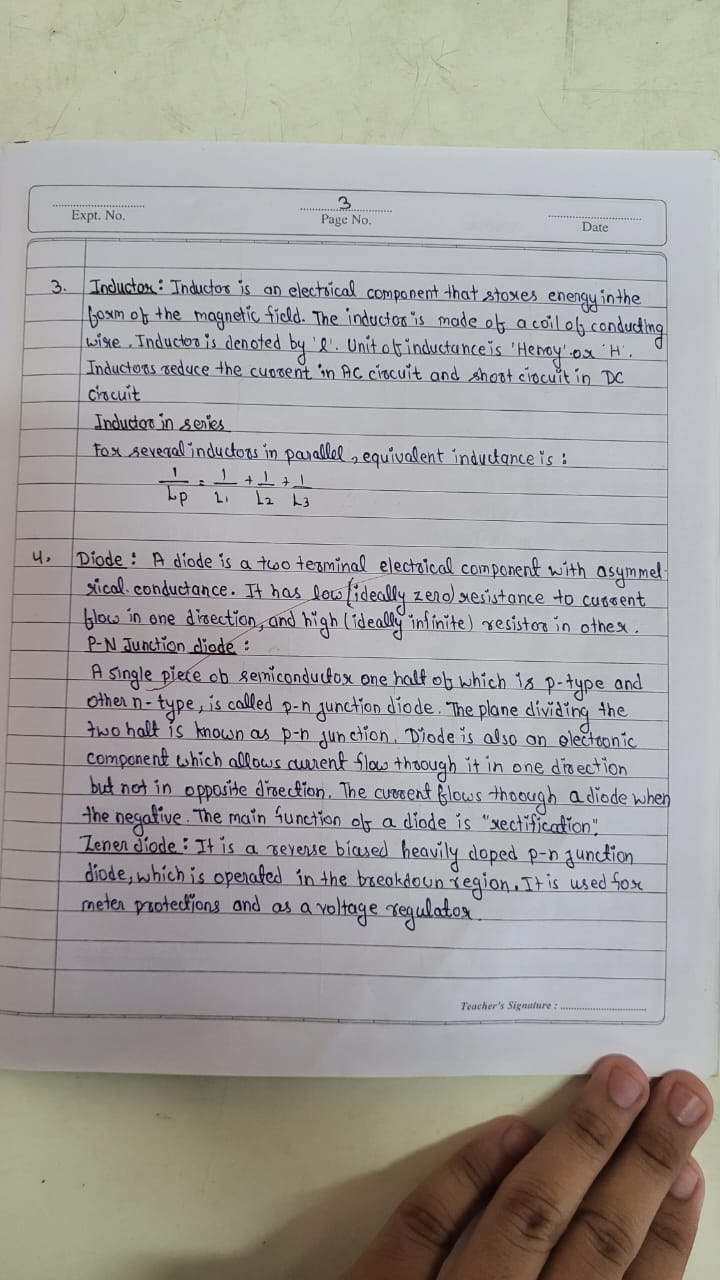 3
Expt. No.
Page No.
Date
3. Inductor: Inductor is an electrical component that stores energy in the
form of the magnetic field. The inductor is made of a coil of conducting
wire. Inductor is denoted by 'l'. Unit of inductance is 'Henry' or 'H'.
Inductors reduce the current in AC circuit and short circuit in DC
circuit
Inductor in series
For several inductors in parallel, equivalent inductance is:
1/Lp = 1/L1 + 1/L2 + 1/L3
4. Diode: A diode is a two terminal electrical component with asymmet-
rical conductance. It has low (ideally zero) resistance to current
flow in one direction, and high (ideally infinite) resistor in other.
P-N Junction diode:
A single piece of semiconductor one half of which is p-type and
other n-type, is called p-n junction diode. The plane dividing the
two half is known as p-n junction. Diode is also an electronic
component which allows current flow through it in one direction
but not in opposite direction. The current flows through a diode when
the negative. The main function of a diode is "rectification".
Zener diode: It is a reverse biased heavily doped p-n junction
diode, which is operated in the breakdown region. It is used for
meter protections and as a voltage regulator.
Teacher's Signature: